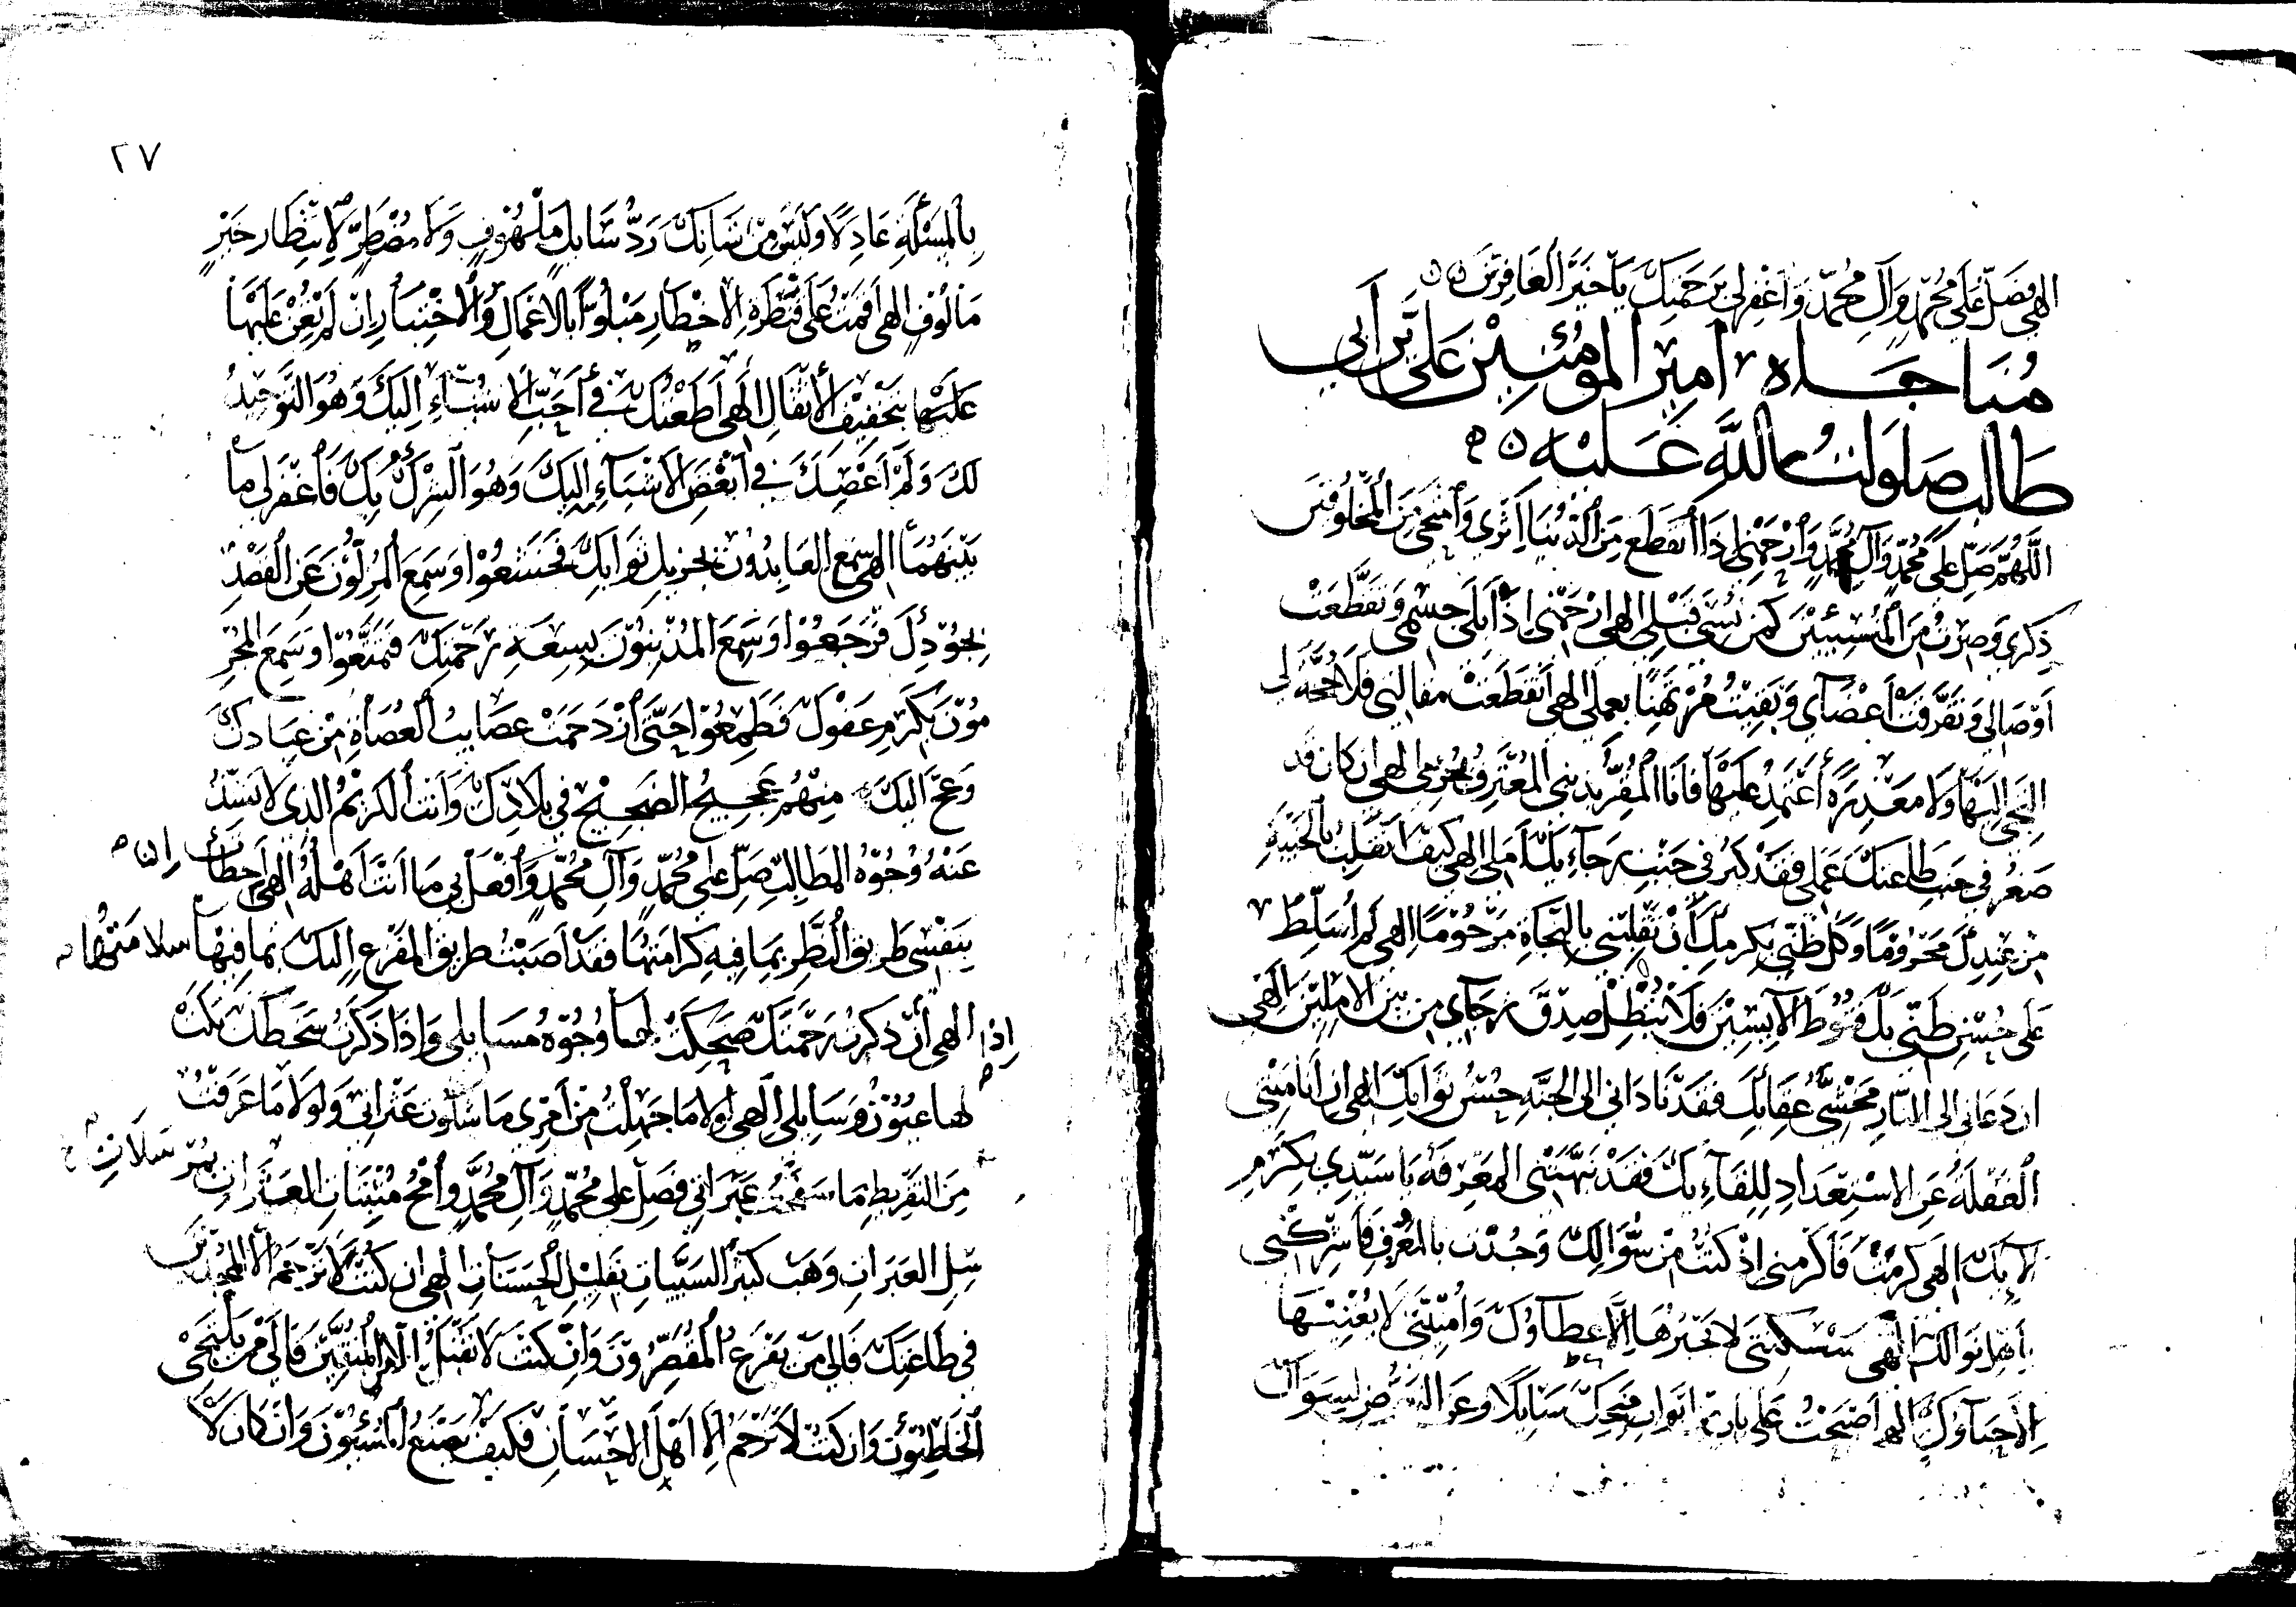 الهي فصل على محمد وآل محمد واغفر لي برحمتك يا خير الغافرين
مناجاة امير المؤمنين علي بن أبي
طالب صلوات الله عليه
اللهم صل على محمد وآل محمد وارحمني إذا انقطع من الدنيا أثري وامتحى من المخلوقين
ذكري وصرت من المنسيين كمن نسي قبلي الهي ارحمني إذا بلي جسمي وتقطعت
أوصالي وتفرقت أعضاي وبقيت مرتهنا بعملي الهي انقطعت مقالتي فلا حجة لي
التجي إليها ولا معذرة أعتمد عليها فأنا المقر بذنبي المعترف بجرمي الهي ان كان قد
صغر في جنب طاعتك عملي فقد كبر في جنب رجاءك أملي الهي كيف انقلب بالخيبة
من عندك محروما وكل ظني بكرمك أن تقلبني بالنجاة مرحوما الهي لم اسلط
على حسن ظني بك قنوط الآيسين فلا تبطل صدق رجاي من بين الآملين الهي
ان دعاني الى النار مخشي عقابك فقد ناداني الى الجنة حسن ثوابك الهي ان أنامتني
الغفلة عن الاستعداد للقاءك فقد نبهتني المعرفة يا سيدي بكرم
آلائك الهي كرمت فأكرمني إذ كنت من سؤالك وجدت بالمعرف فأشركني
بأهل نوالك الهي مسكنتي لا يجبرها إلا عطاؤك وأمنيتي لا يغنيها
إلا حباؤك الهي أصبحت على باب من أبواب منحك سايلا وعن التعرض لسواك
٢٧
بالمسئلة عادلا وليس من شانك رد سايل ملهوف ولا مضطر لانتظار خير
مالوف الهي أقمت على قنطرة الاخطار مبلوا بالاعمال والاختبار ان لم تعن عليها
عليها بتخفيف الأثقال الهي أطعتك في أحب الأشياء إليك وهو التوحيد
لك ولم أعصك في أبغض الأشياء إليك وهو الشرك بك فاغفر لي ما
بينهما الهي سمع العابدون بجزيل ثوابك فخشعوا وسمع المزلون عن القصد
بجودك فرجعوا وسمع المذنبون بسعة رحمتك فتمتعوا وسمع المجر
مون بكرم عفوك فطمعوا حتى ازدحمت عصايب العصاة من عبادك
وعج اليك منهم عجيج الضجيج في بلادك وأنت الكريم الذي لا تسد
عنه وجوه المطالب صل على محمد وآل محمد وافعل بي ما أنت أهله الهي أخطأت ان انا
بنفسي طريق النظر بما فيه كرامتها فقد أصبت طريق المفزع إليك بما فيها سلامتها
إذا الهي ان ذكرت رحمتك ضحكت لها وجوه مسايلي وإذا ذكرت سخطك بكت
لها عيون وسايلي الهي لولا ما جهلت من أمري ما شكوت عثراتي ولولا ما عرفت
من التفريط ما سفحت عبراتي فصل على محمد وآل محمد وامح مثبتات العثرات بمرسلات
سيل العبرات وهب كبير السيئات بقليل الحسنات الهي ان كنت لا ترحم الا المجدين
في طاعتك فالى من يفزع المقصرون وان كنت لا تقبل إلا من المتقين فالى من يلتجي
الخاطئون وان كنت لا ترحم الا أهل الاحسان فكيف يصنع المسيئون وان كان لا